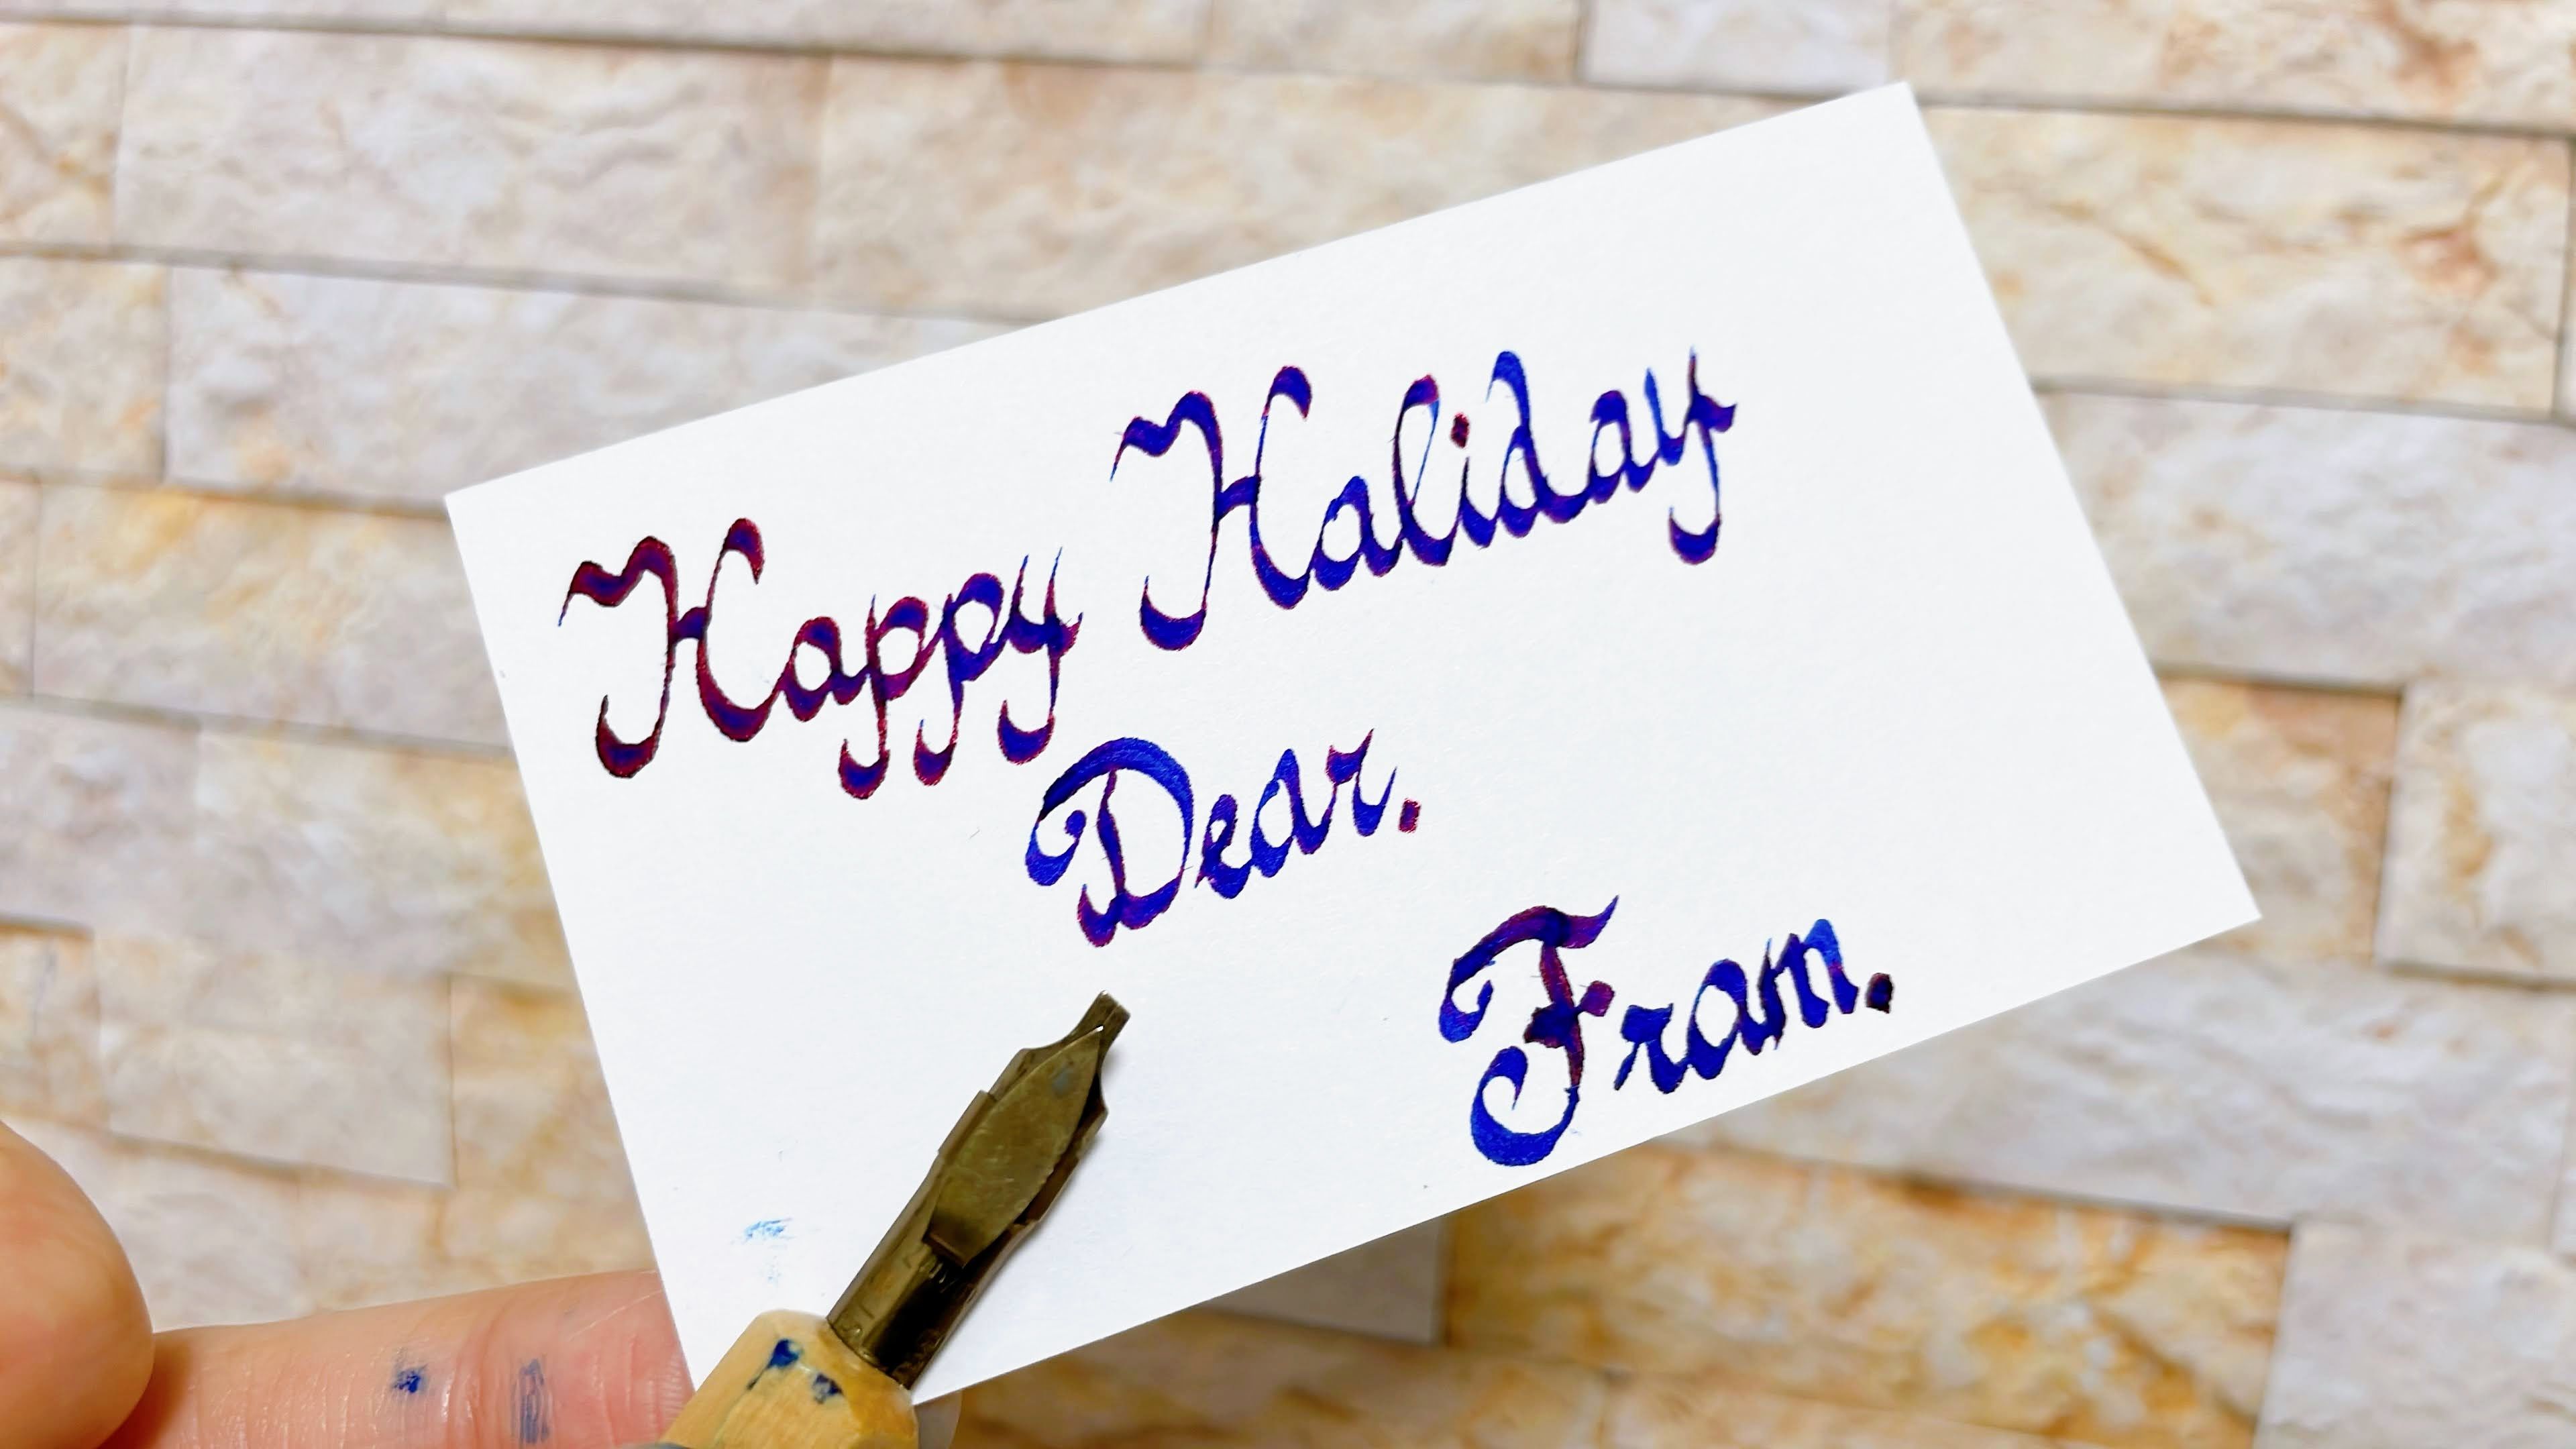 Happy Haliday
Dear.
Fram.